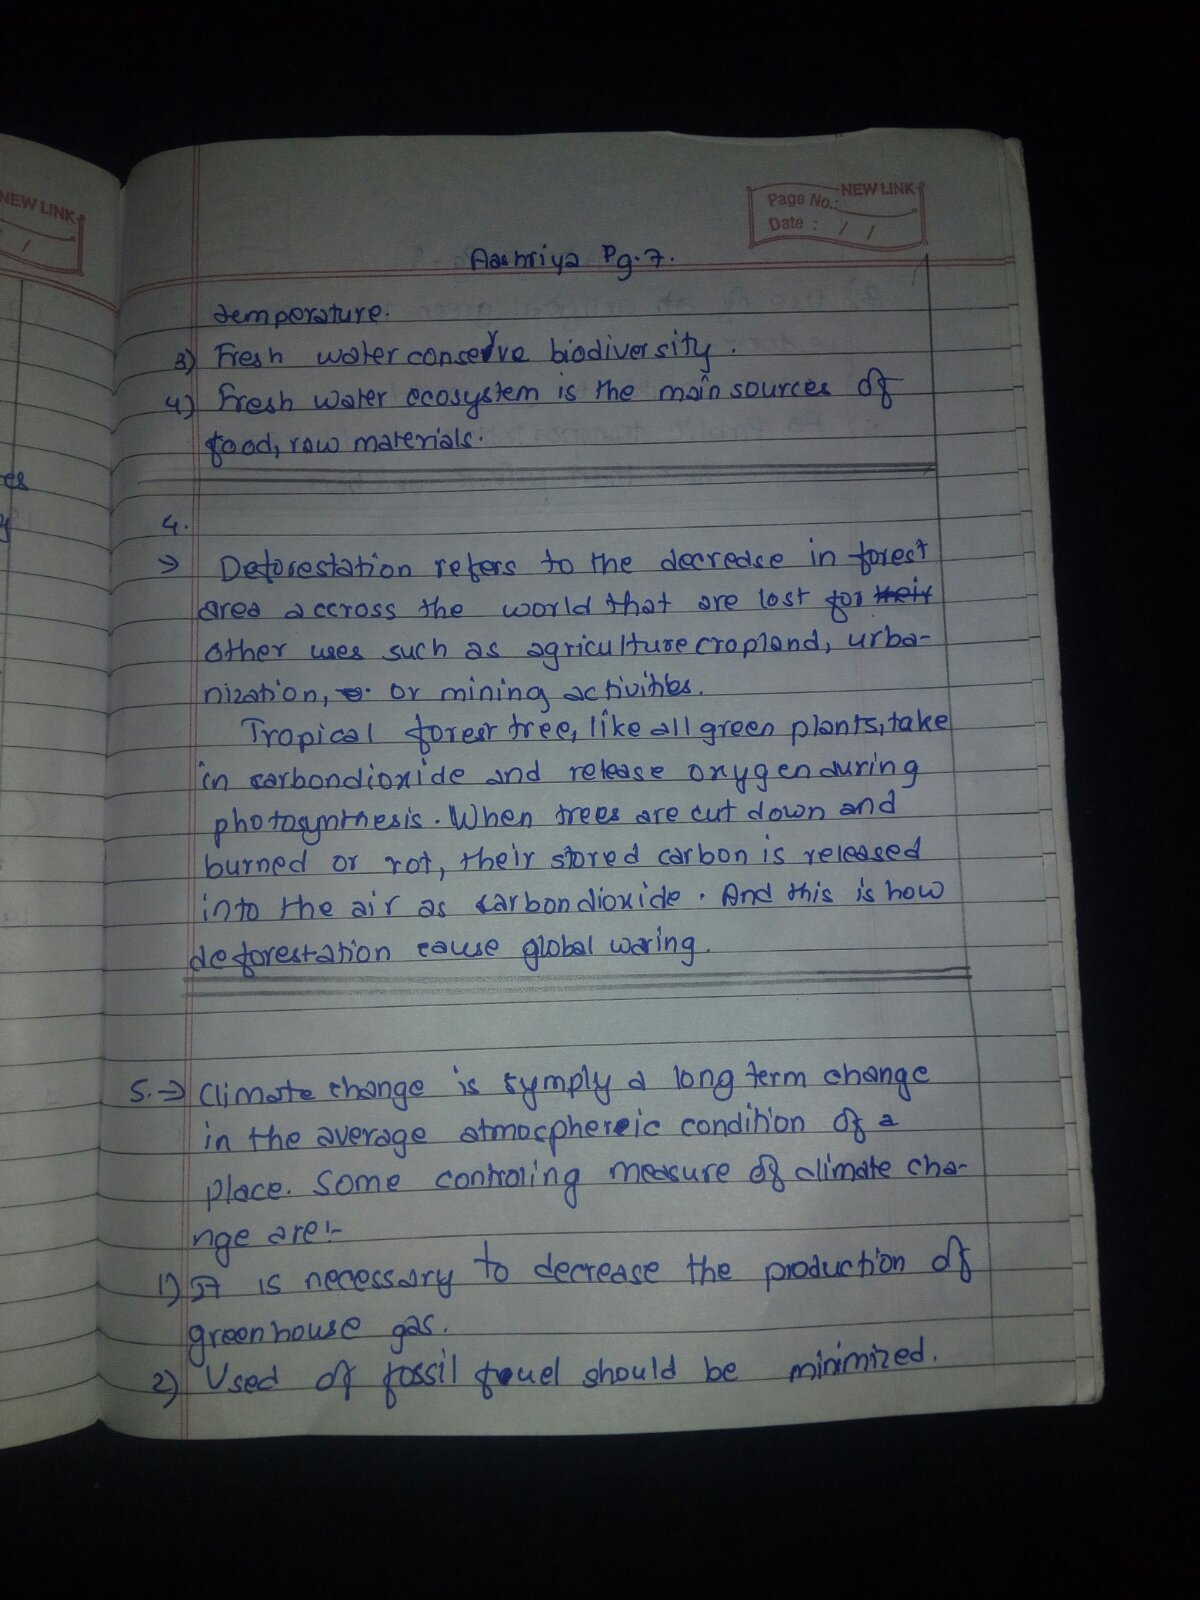 NEW LINK
/
NEW LINK
Page No.:
Date : / /
Aashriya Pg.7.
es
y
temperature.
3) Fresh water conserve biodiversity.
4) Fresh water ecosystem is the main sources of
food, raw materials.
4.
→ Deforestation refers to the decrease in forest
area accross the world that are lost for their
other uses such as agriculture cropland, urba-
nization, or mining activities.
Tropical forest tree, like all green plants, take
in carbondioxide and release oxygen during
photosynthesis. When trees are cut down and
burned or rot, their stored carbon is released
into the air as carbondioxide. And this is how
deforestation cause global waring.
5.→ Climate change is symply a long term change
in the average atmosphereic condition of a
place. Some controling measure of climate cha-
nge are:-
1) It is necessary to decrease the production of
greenhouse gas.
2) Used of fossil fouel should be minimized.